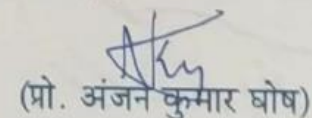 (प्रो. अंजन कुमार घोष)